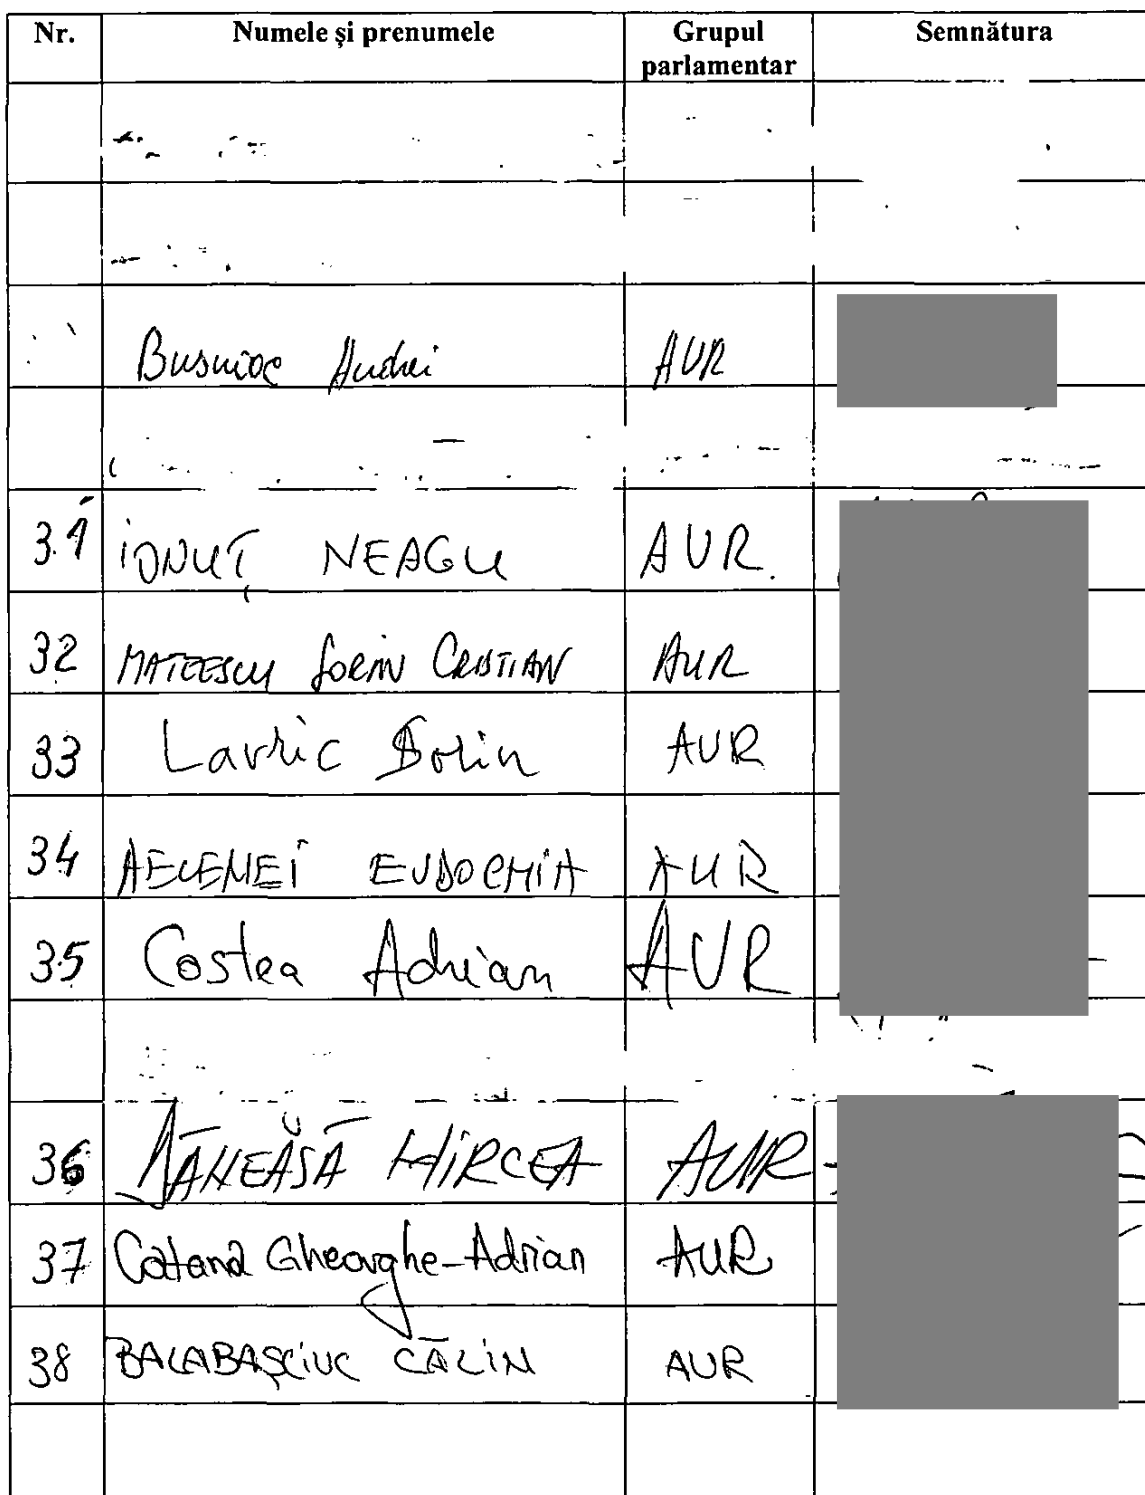 Nr. Numele și prenumele Grupul parlamentar Semnătura
Busuioc Andrei AUR
31 IONUȚ NEAGU AUR.
32 MATEESCU SORIN CRISTIAN AUR
33 Lavric Sorin AUR
34 AELENEI EVDOCHIA AUR
35 Costea Adrian AUR
36 MIRCEA AUR
37 Catană Gheorghe-Adrian AUR
38 BALABAȘCIUC CĂLIN AUR